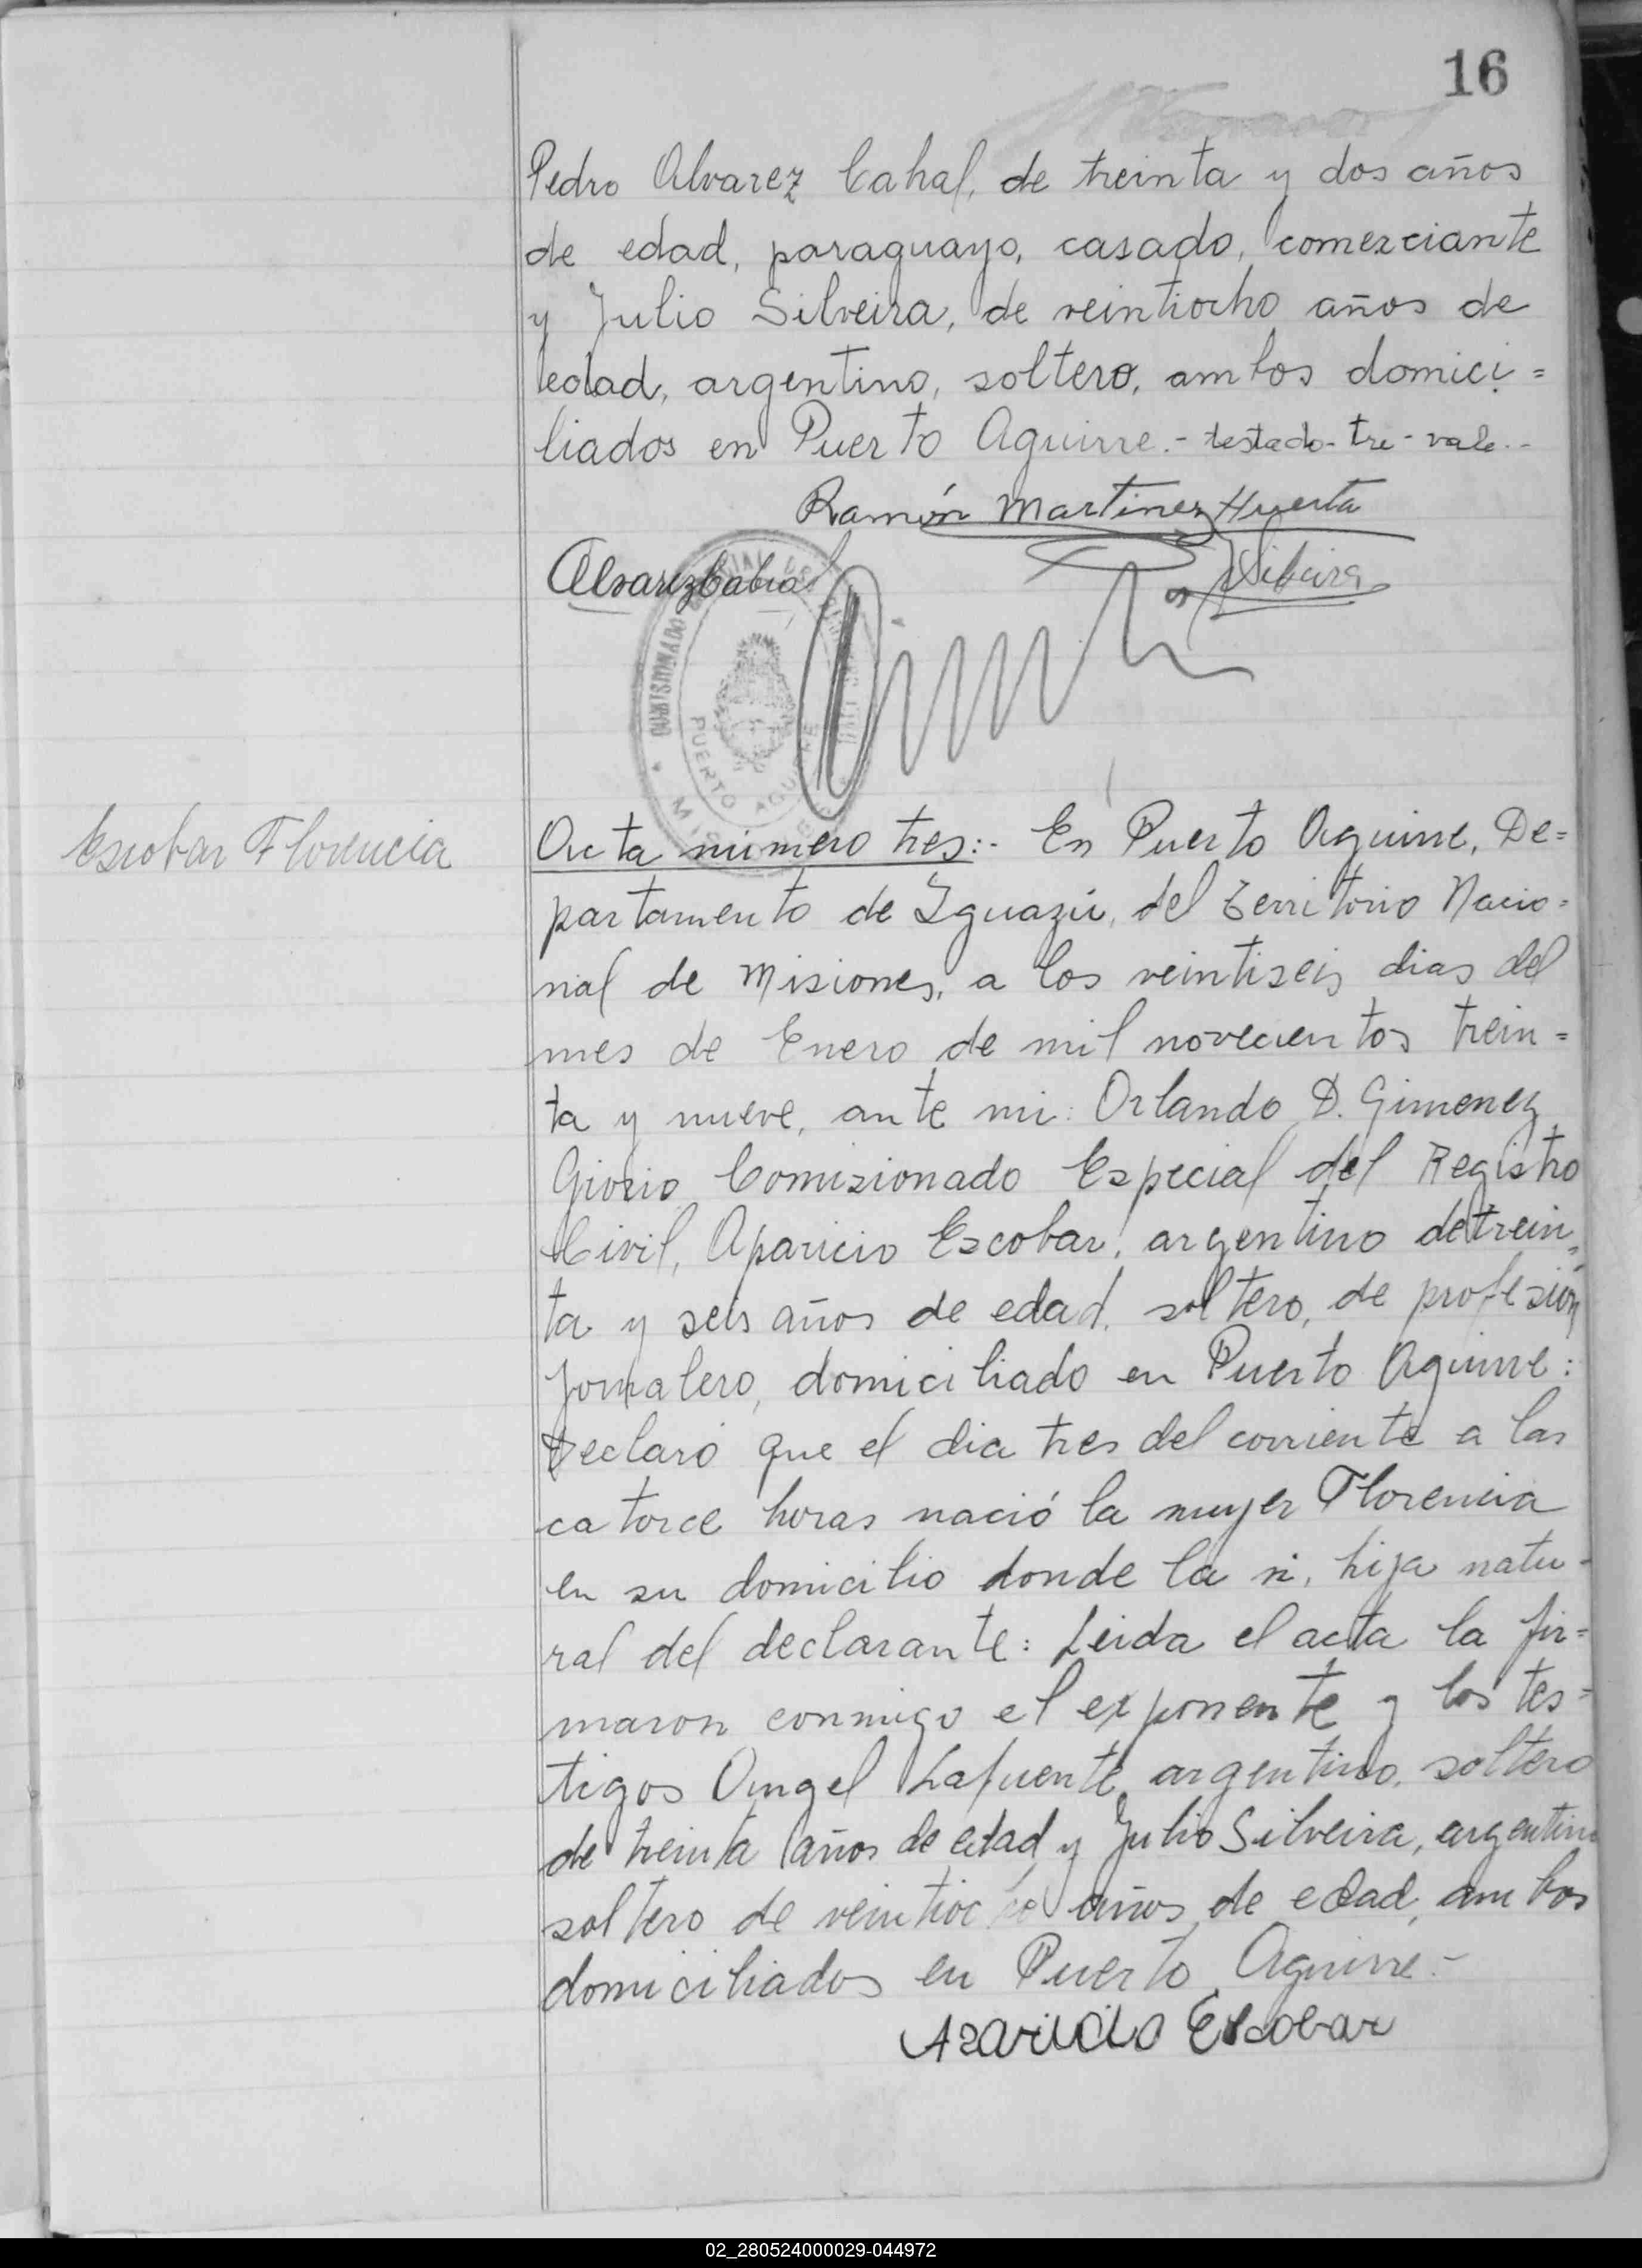 16
Pedro Alvarez Cabral, de treinta y dos años
de edad, paraguayo, casado, comerciante
y Julio Silveira, de veintiocho años de
edad, argentino, soltero, ambos domici=
liados en Puerto Aguirre.- testado-tre-vale.-
Ramón Martinez Huerta
Alvarez Cabral
Silveira
COMISIONADO
PUERTO AGUIRRE
Escobar Florencia
Acta número tres:- En Puerto Aguirre, De=
partamento de Iguazú, del Territorio Nacio=
nal de Misiones, a los veintiseis dias del
mes de Enero de mil novecientos trein=
ta y nueve, ante mi: Orlando D. Gimenez
Giorio Comisionado Especial del Registro
Civil, Aparicio Escobar, argentino de trein=
ta y seis años de edad, soltero, de profesión
jornalero, domiciliado en Puerto Aguirre:
Declaró que el dia tres del corriente a las
catorce horas nació la mujer Florencia
en su domicilio donde la vi, hija natu=
ral del declarante: Leida el acta la fir=
maron conmigo el exponente y los tes=
tigos Angel Lafuente, argentino, soltero
de treinta años de edad y Julio Silveira, argentino
soltero de veintiocho años de edad, ambos
domiciliados en Puerto Aguirre.-
Aparicio Escobar
02_280524000029-044972